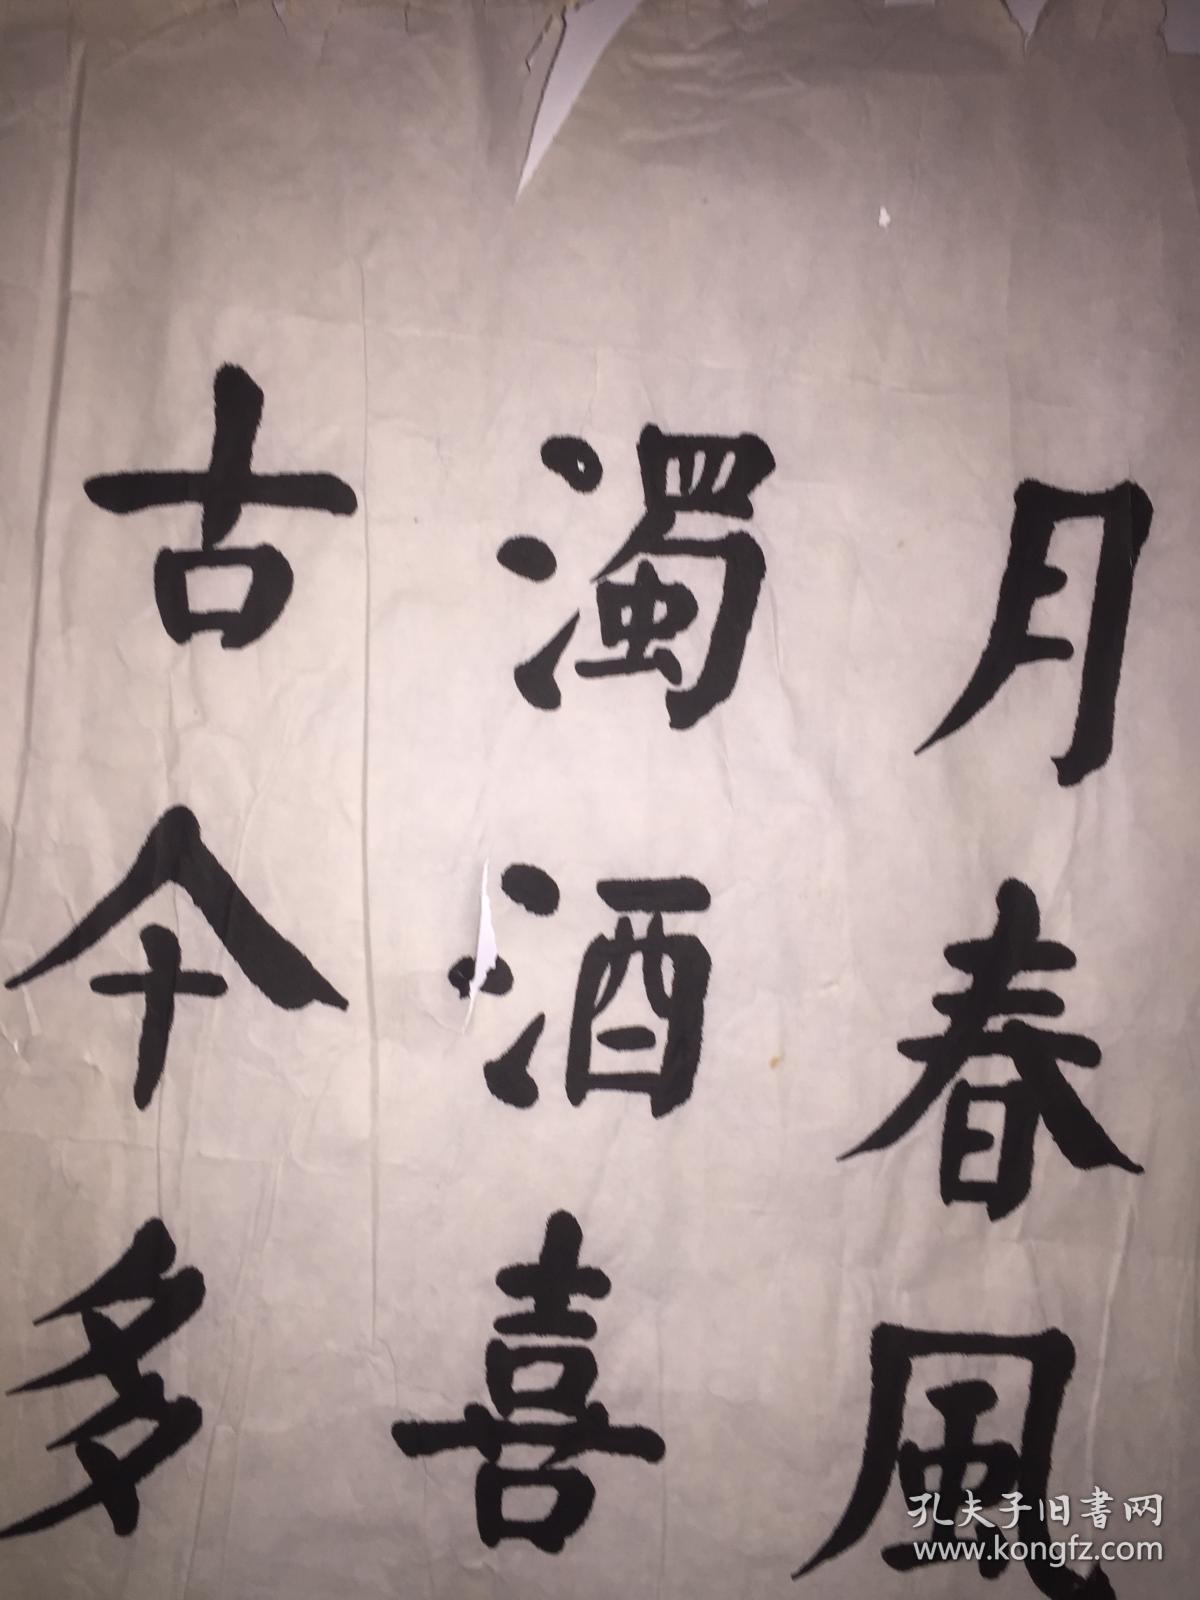 月春風
濁酒喜
古今多
孔夫子旧書网
www.kongfz.com